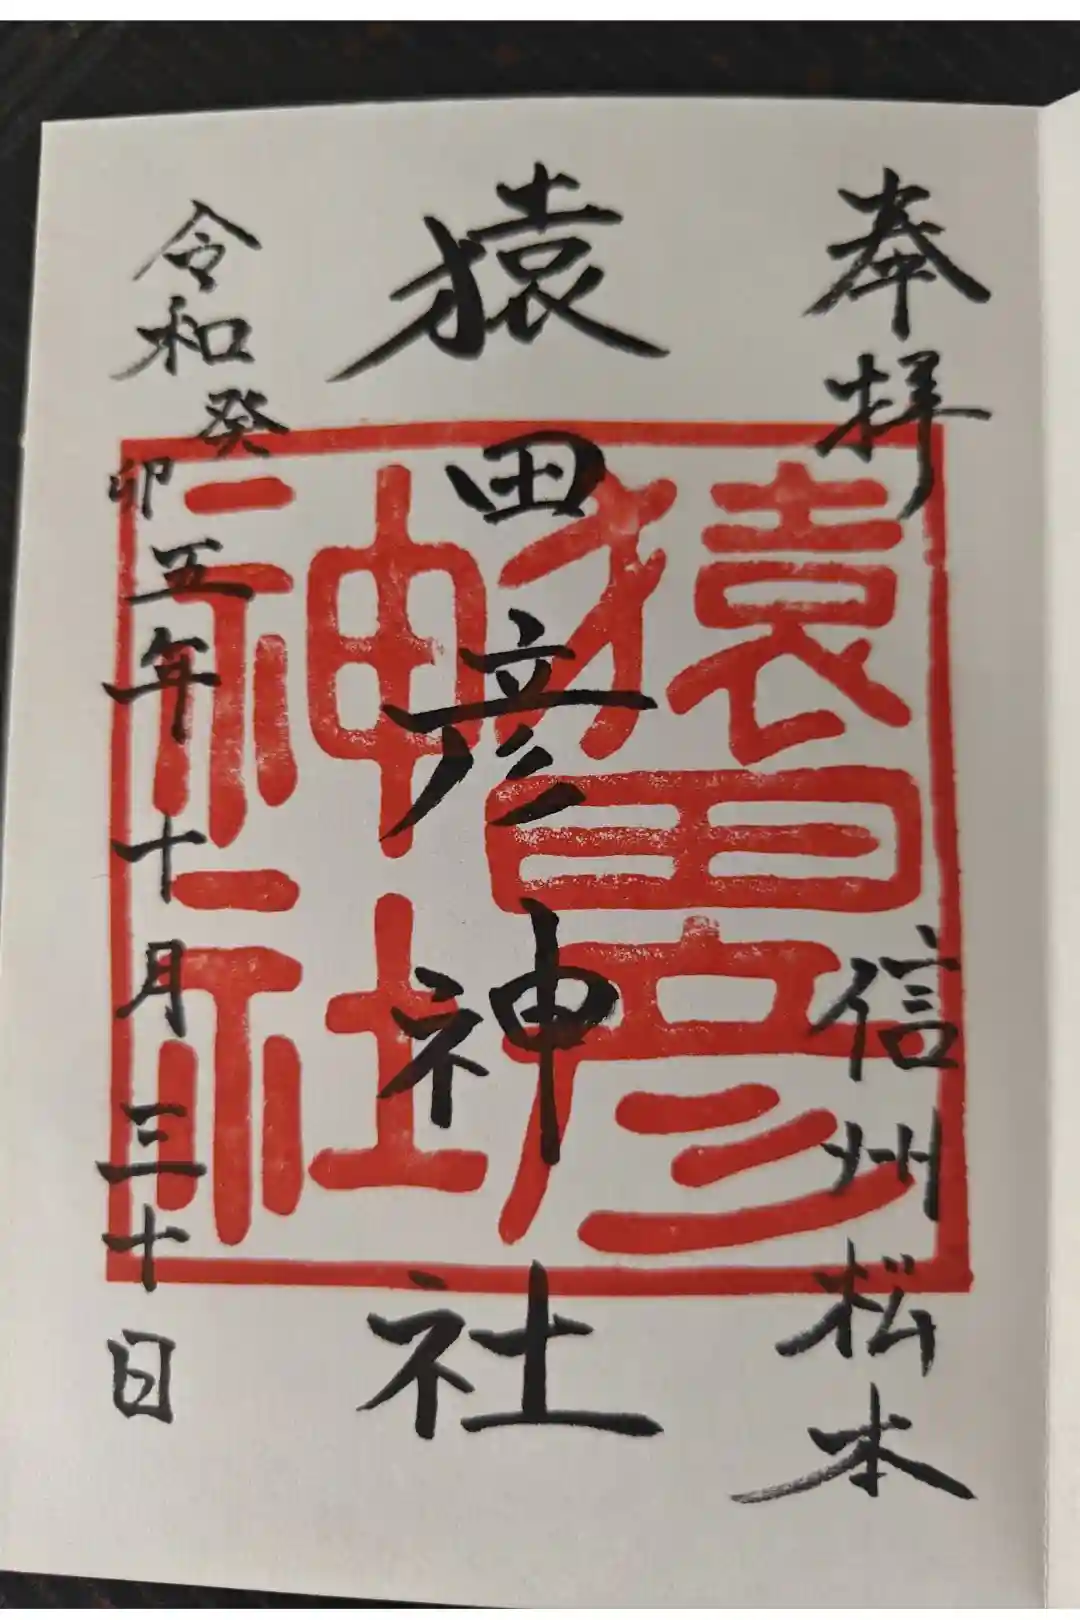 奉拝
信州松本
猿田彦神社
令和癸卯五年十月三十日
猿田彦
神社